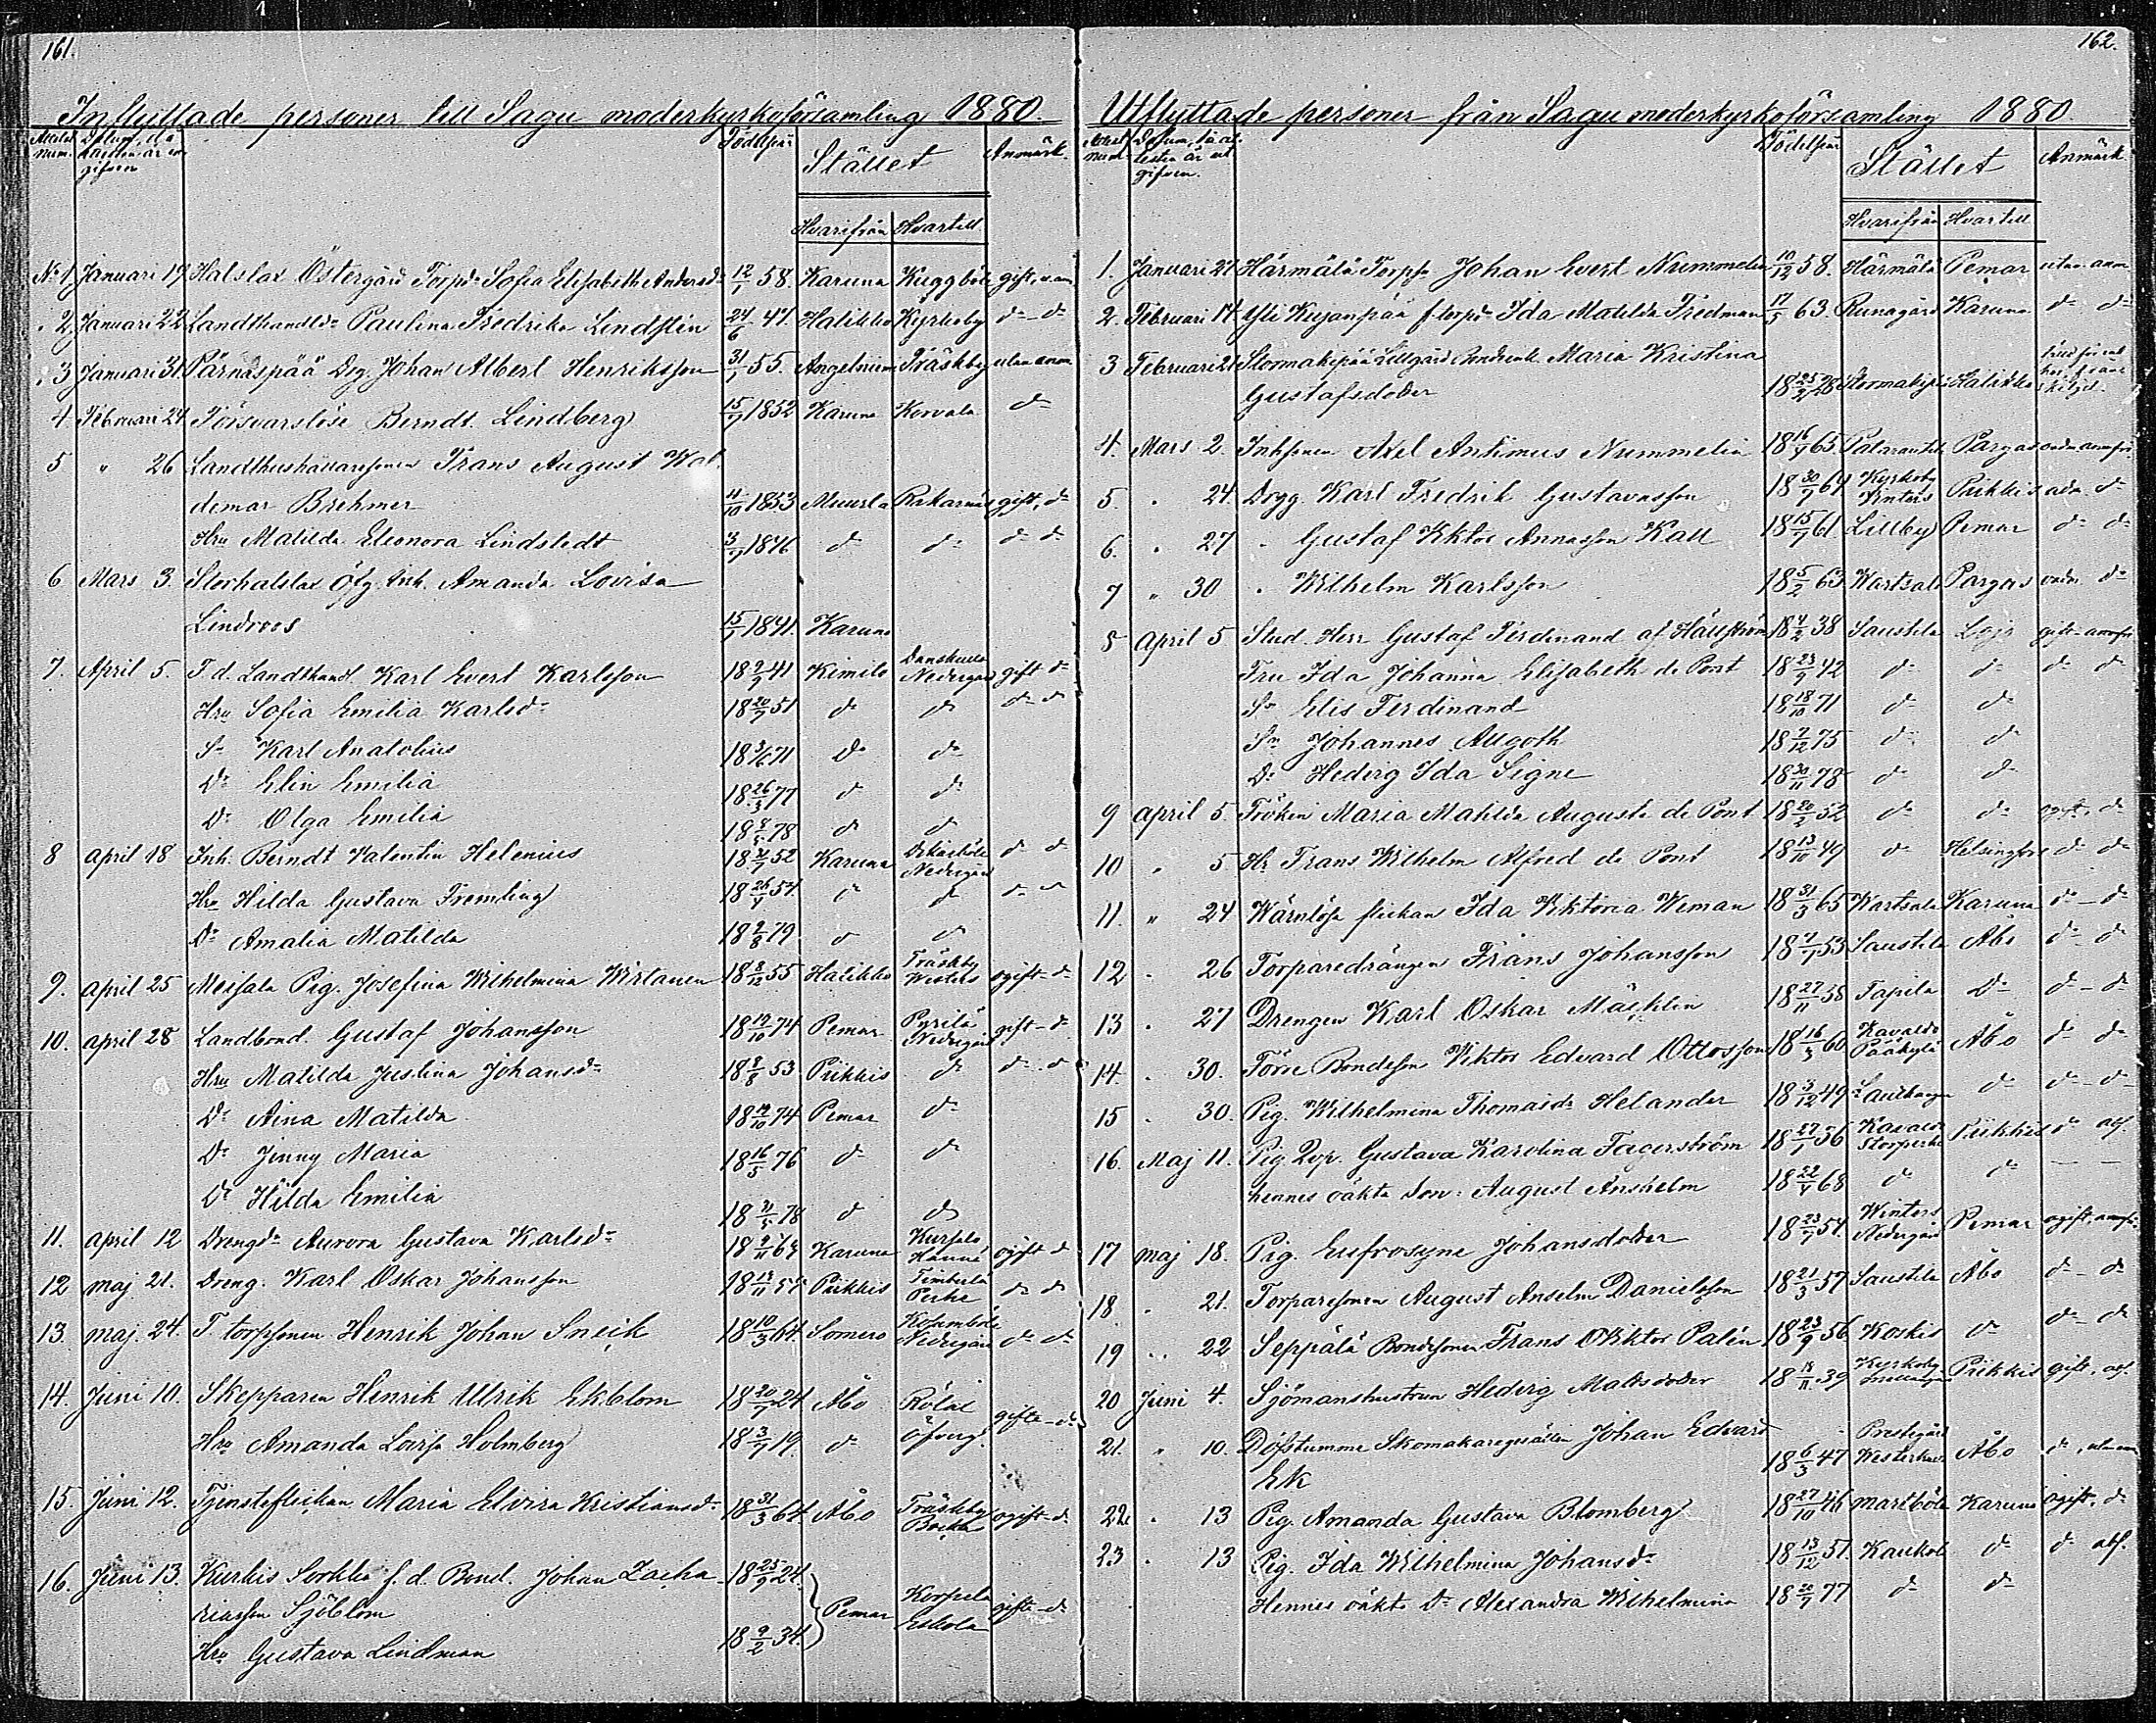 161.
Inflyttade personer till Sagu moderkyrkoförsamling 1880.
Födelseår Stället Anmärk.
Hvarifrån Hvartill
No 1. Januari 19. Halslax Östergård Torpd. Sofia Elisabeth Andersd. 12/1 58. Karuna Kuggböle gift, u. anm.
2. Januari 22. Paulina Fredrika Lindstén 24/6 47. Halikko Kyrkoby d:o d:o
3. Januari 31. Pärnäspää Drg. Johan Albert Henriksson 31/1 55. Angelniemi Träskby utan anm.
4. Februari 24. Försvarslöse Berndt Lindberg 15/9 1852 Karuna Korvala d:o
5 " 26 Frans August Wal-
demar Brehmer 11/10 1853 Muurla Rakarnäs gift, d:o
Hru Matilda Eleonora Lindstedt 3/9 1846 d:o d:o d:o d:o
6 Mars 3. Storhalslax Öfg. Inh. Amanda Lovisa
Lindroos 15/7 1841. Karuna
7. April 5. F.d. Landthandl. Karl Evert Karlsson 18 2/9 41 Kimito Nedergård gift d:o
Hru Sofia Emilia Karlsd. 18 20/7 51 d:o d:o d:o d:o
S. Karl Anatolius 18 3/6 71 d:o d:o
D. Elin Emilia 18 26/3 77 d:o d:o
D. Olga Emilia 18 8/5 78 d:o d:o
8 April 18 Inh. Berndt Valentin Helenius 52 Karuna Nedergård d:o d:o
Hru Hilda Gustava Fremling 18 26/4 54 d:o d:o d:o d:o
D. Amalia Matilda 18 2/8 79 d:o d:o
9. April 25 Meisala Pig. Josefina Wilhelmina Wirtanen 18 8/12 55 Halikko Träskby Westers ogift d:o
10. April 28 Landbond. Gustaf Johansson Pemar Pyrilä Nedergård gift d:o
Hru Matilda Justina Johansd. 18 8/8 53 Pikkis d:o d:o d:o
D. Aina Matilda 18 19/10 74 Pemar d:o
D. Jenny Maria 18 16/5 76 d:o d:o
D. Hilda Emilia 18 31/5 78 d:o d:o
11. April 12 Drengd. Aurora Gustava Karlsd. Karuna ogift d:o
12 Maj 21. Dreng. Karl Oskar Johansson Pikkis d:o d:o
13. Maj. 24. F. torpsonen Henrik Johan Sneik 18 10/3 64. Somero Nedergård d:o d:o
14. Juni 10. Skepparen Henrik Ulrik Ekblom 18 20/7 24 Åbo Rölax gifte d:o
Hru Amanda Lovisa Holmberg 18 3/7 19. d:o Öfverg.
15. Juni 12. Tjensteflickan Maria Elvira Kristiansd. 18 31/3 64. Åbo Träskby ogift d:o
16. Juni 13. Kurkis Sorkko f. d. Bond. Johan Zacha- 18 25/9 24.
riasson Sjöblom Pemar Korpela Eskola gifte d:o
Hru Gustava Lindman 18 9/2 34.
162.
Utflyttade personer från Sagu moderkyrkoförsamling 1880.
Födelseår Stället Anmärk.
Hvarifrån Hvartill
1. Januari 27 Härmälä Torpsn Johan Evert Nummelin 10/12 58. Härmälä Pemar utan anm.
2. Februari 14 Yli Kujanpää f. torpd. Ida Matilda Fredman 17/5 63. Runagård Karuna d:o d:o
3 Februari 21 Stormakipää Lillgård Maria Kristina
Gustafsdotter 18 25/2 28 Stormakipää Halikko
4. Mars 2. Inhsonen Axel Antimus Nummelin 18 16/9 65 Pargas
5. " 24. Drgg. Karl Fredrik Gustavasson 18 30/7 64 Kyrkoby Winters Pikkis d:o
6. " 27 " Gustaf Viktor Annasson Kall 18 15/7 61. Lillby Pemar d:o d:o
7 " 30 " Wilhelm Karlsson 18 5/2 63 Wartsala Pargas d:o
8 April 5 Stud. Herr Gustaf Ferdinand af Hällström 18 4/2 38 Saustila Lojo gift
Fru Ida Johanna Elisabeth de Pont 18 23/9 42 d:o d:o d:o d:o
S:n Elis Ferdinand 18 18/10 71 d:o d:o
S:n Johannes Augoth 18 7/12 75 d:o d:o
D. Hedvig Ida Signe 18 30/11 78 d:o d:o
9 April 5 Fröken Maria Matilda Augusta de Pont 18 20/2 52 d:o d:o ogift, d:o
10 " 5 Hr Frans Wilhelm Alfred de Pont 18 13/10 49 d:o Helsingfors d:o d:o
11. " 24 Wärnlösa flickan Ida Viktoria Weman 18 31/3 65 Wartsala Karuna d:o d:o
12 " 26 Torparedrängen Frans Johansson 53 Saustila Åbo d:o d:o
13 " 27 Drengen Karl Oskar Mäcklin 18 27/11 58 Tapila D:o d:o d:o
14. " 30. Förre Bondeson Viktor Edvard Ottosson 18 16/3 60 Kavaldo Pääkylä Åbo d:o d:o
15 " 30. Pig. Wilhelmina Thomasd. Helander 18 3/12 49 d:o d:o d:o
16. Maj 11. Pig. Gustava Karolina Fagerström 18 27/1 36 Pikkis d:o
hennes oäkta Son: August Anshelm 18 22/4 68 d:o d:o
17 Maj 18. Pig. Eufrosyne Johansdotter 18 23/7 54. Winters Nedergård Pemar ogift
18 " 21. Torparesonen August Anselm Danielsson 18 21/3 57 Saustila Åbo d:o d:o
19 " 22 Seppälä Bondesonen Frans Viktor Palén 18 23/9 56 Koskis d:o d:o d:o
20 Juni 4. Sjömanshustrun Hedvig Mattsdotter 39 Kyrkoby Pikkis gift
21. " 10. Döfstumme Skomakaregesällen Johan Edvard
Ek 18 6/3 47 Prestegård Åbo d:o
22. " 13 Pig. Amanda Gustava Blomberg 18 27/10 46 Martböle Karuna ogift, d:o
23 " 13 Pig. Ida Wilhelmina Johansd. 18 13/12 51. d:o d:o
Hennes oäkta D. Alexandra Wilhelmina 77 d:o d:o